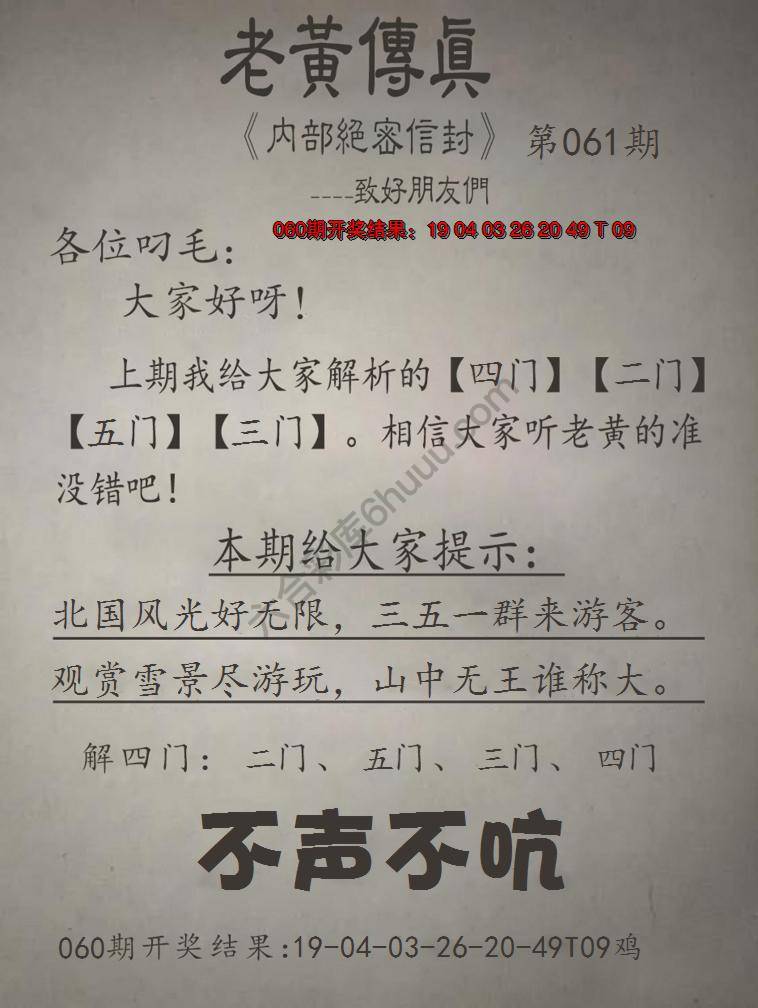 老黃傳眞
《内部絕密信封》 第061期
----致好朋友們
060期开奖结果：19 04 03 26 20 49 T 09
各位叼毛：
大家好呀！
上期我给大家解析的【四门】【二门】
【五门】【三门】。相信大家听老黄的准
没错吧！
本期给大家提示：
北国风光好无限，三五一群来游客。
观赏雪景尽游玩，山中无王谁称大。
解四门：二门、五门、三门、四门
不声不吭
060期开奖结果:19-04-03-26-20-49T09鸡
六合彩库6huuu.com